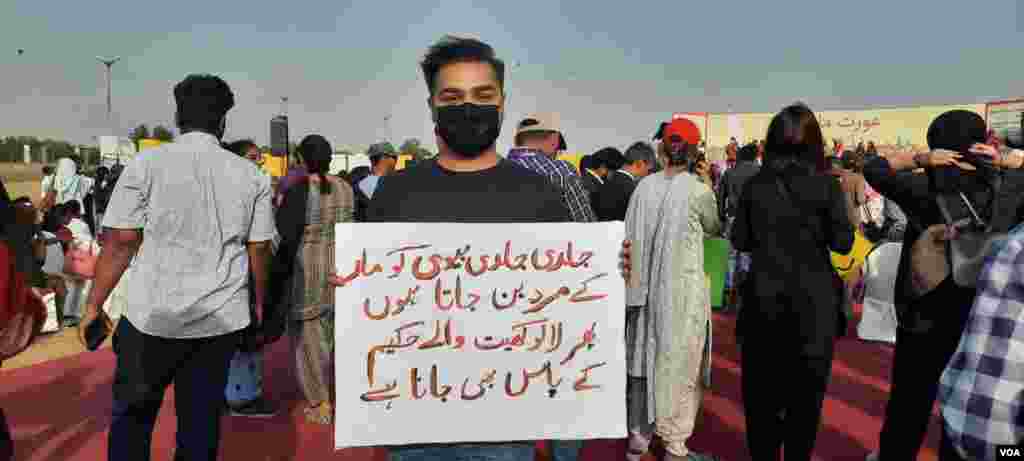 عورت مارچ
جلدی جلدی بیوی کو مار
کے مرد بن جاتا ہوں
پھر لالوکھیت والے حکیم
کے پاس بھی جانا ہے
VOA